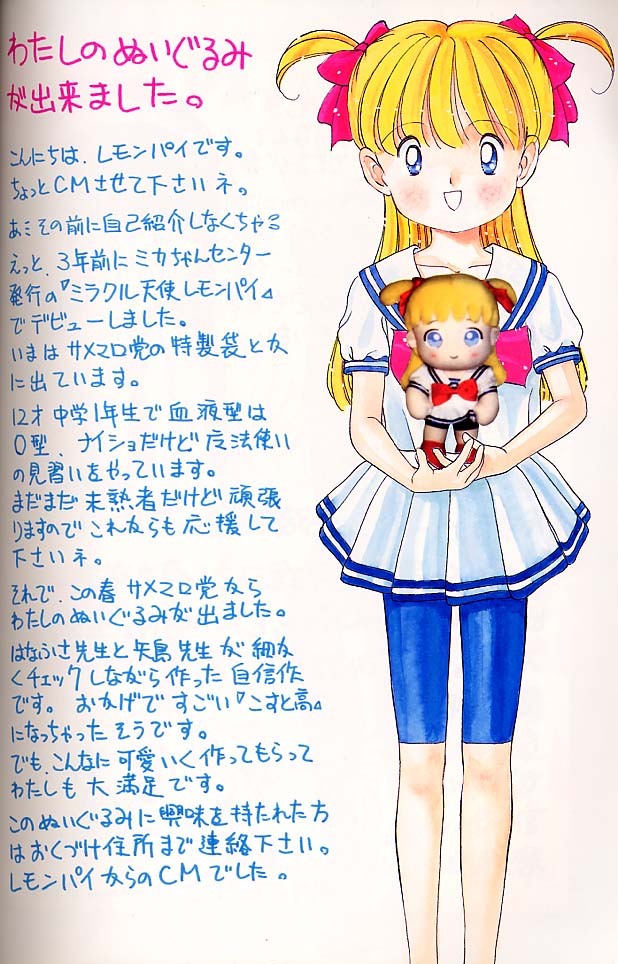 わたしのぬいぐるみ
が出来ました。
こんにちは、レモンパイです。
ちょっとCMさせて下さいネ。
あミその前に自己紹介しなくちゃミ
えっと、3年前にミカちゃんセンター
発行の『ミラクル天使レモンパイ』
でデビューしました。
いまはサメマロ党の特製袋とか
に出ています。
12才中学1年生で血液型は
O型、ナイショだけど魔法使い
の見習いをやっています。
まだまだ未熟者だけど頑張
りますのでこれからも応援して
下さいネ。
それで、この春サメマロ党から
わたしのぬいぐるみが出ました。
はなふさ先生と矢島先生が細か
くチェックしながら作った自信作
です。おかげですごい『こすと高』
になっちゃったそうです。
でも、こんなに可愛いく作ってもらって
わたしも大満足です。
このぬいぐるみに興味を持たれた方
はおくづけ住所まで連絡下さい。
レモンパイからのCMでした。